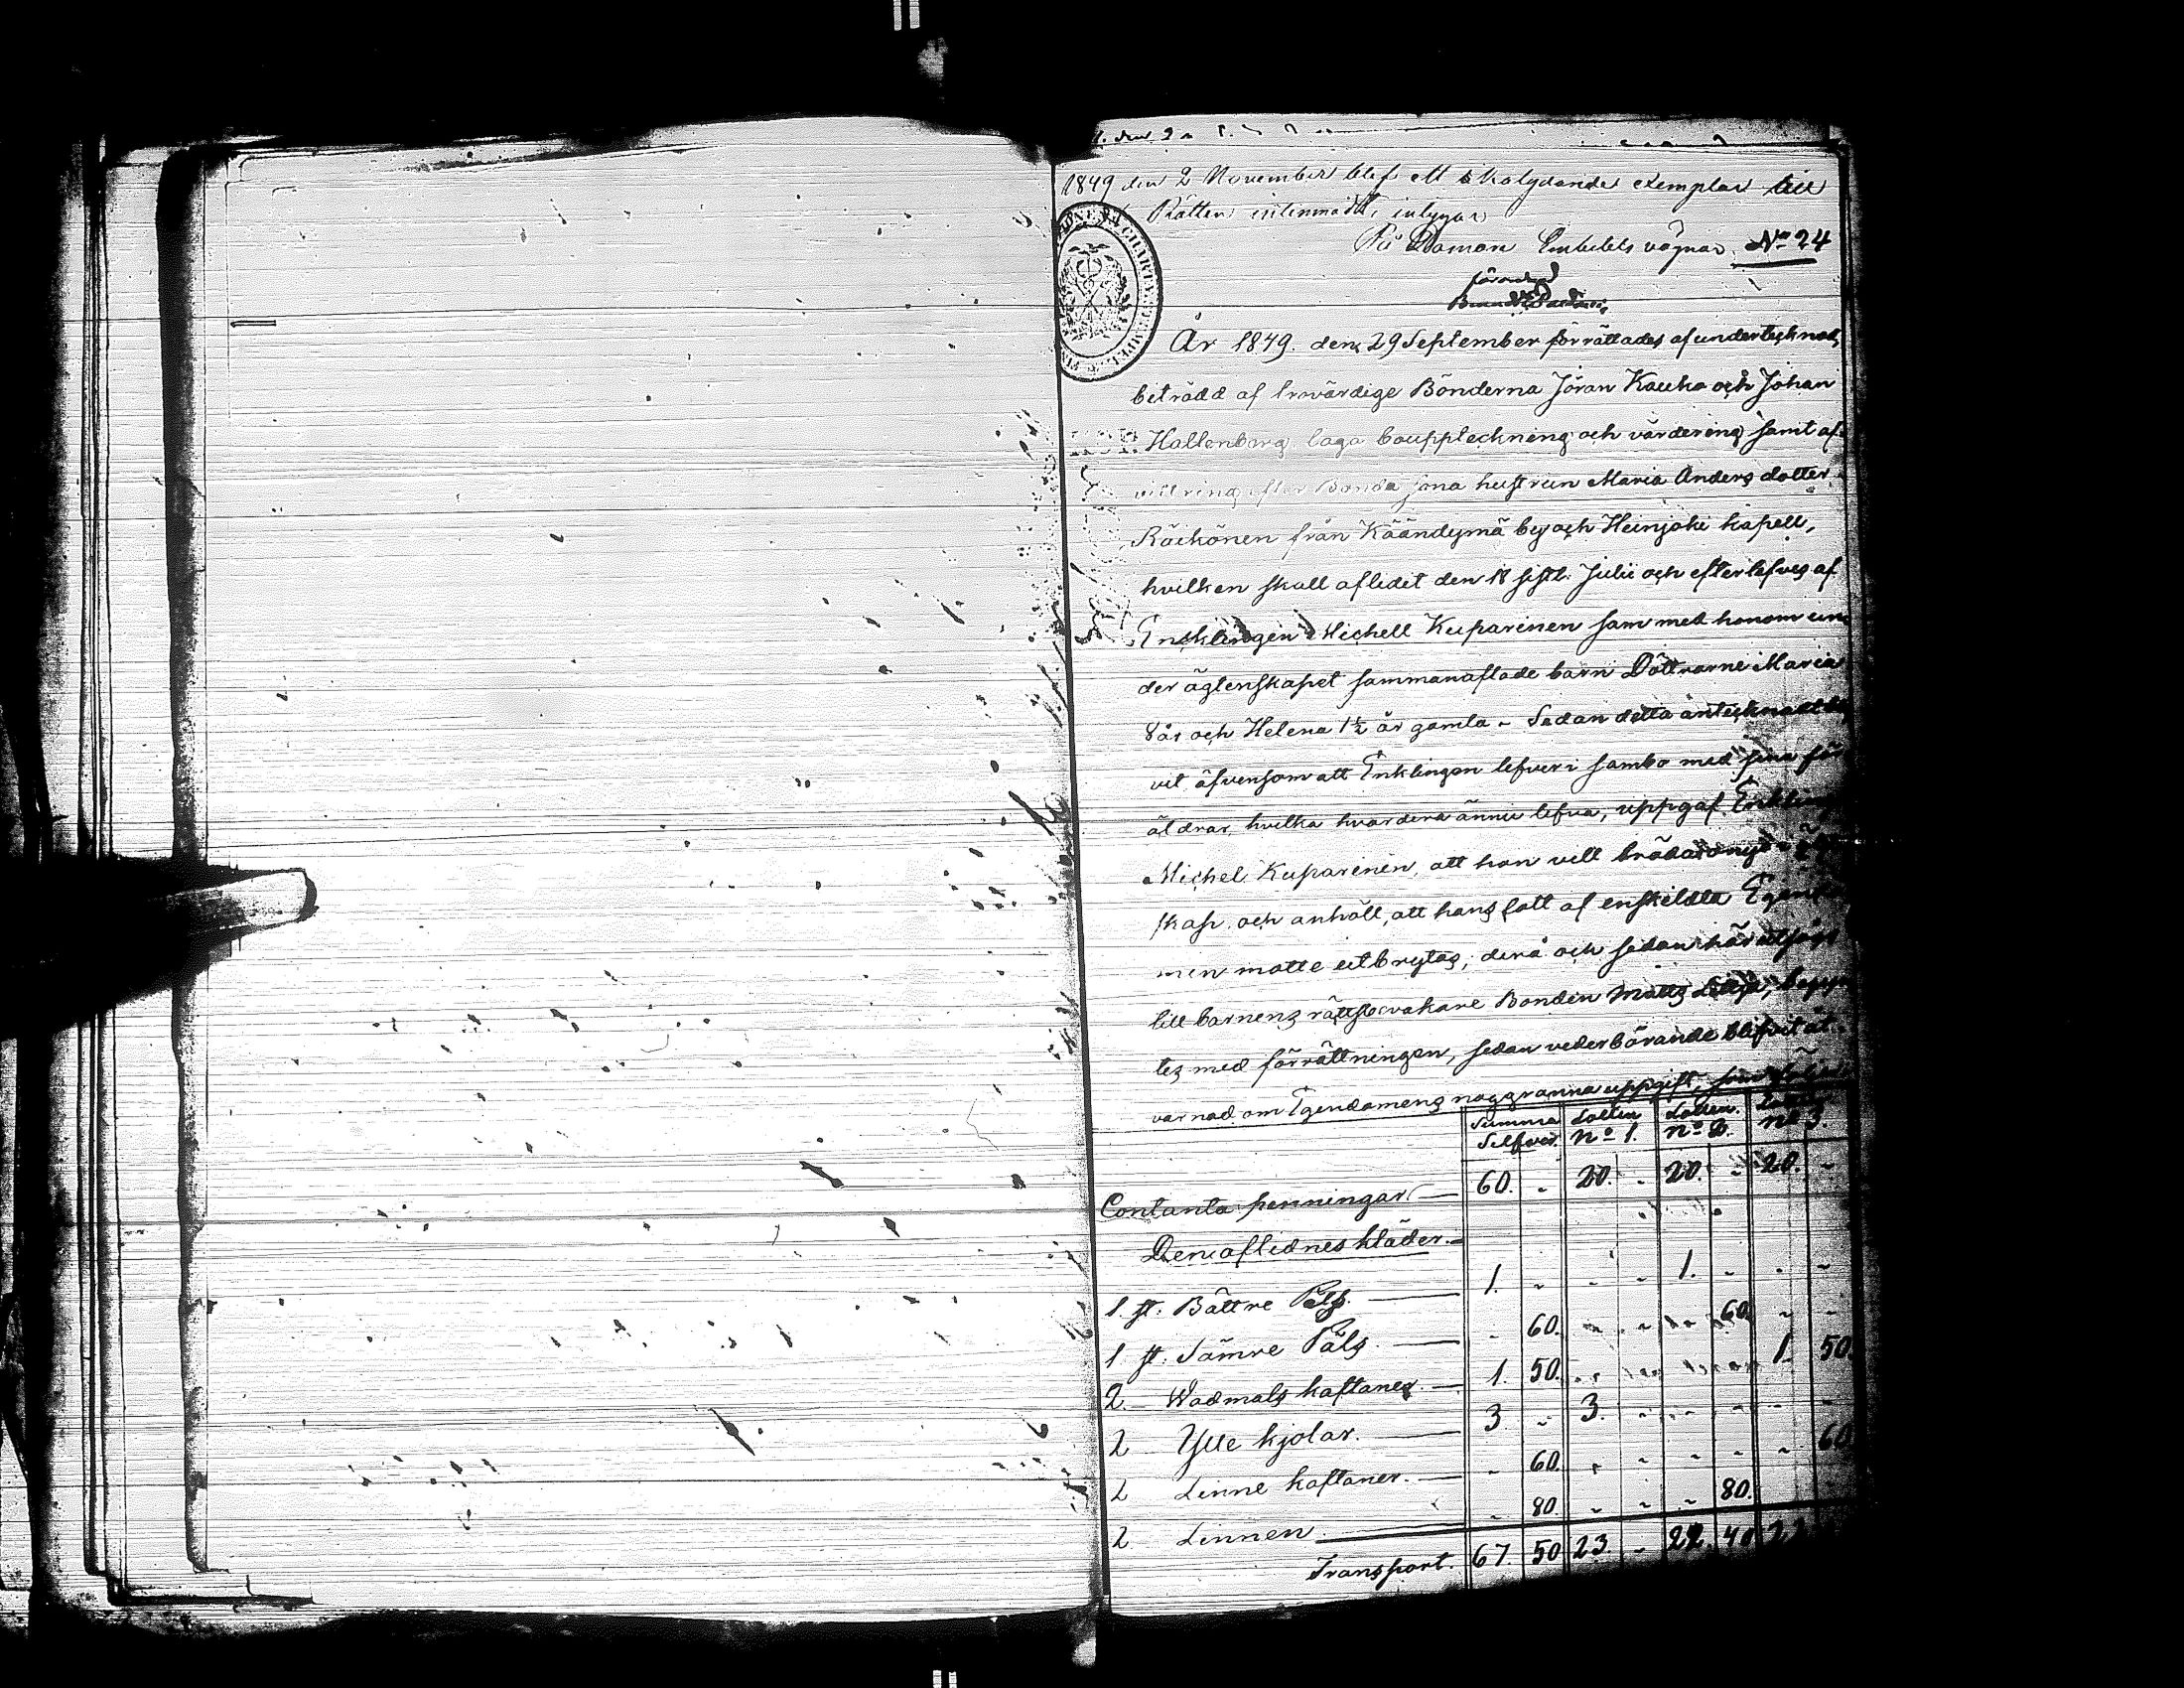 1849 den 2 November blef ett lika lydande exemplar till
Rätten inlemnadt, intygar
På Domare Embetets vägnar No 24
År 1849. den 29 September förrättades af undertecknad,
biträdd af trovärdige Bönderna Jöran Kauko och Johan
Hallenberg laga bouppteckning och värdering samt af-
vittring efter Bonda hustrun Maria Anders dotter
Räikönen från Käändymä by och Heinjoki kapell,
hvilken skall aflidet den 18 sistl. Julii och efterlefves af
Enklingen Michell Kuparinen sam med honom un-
der ägtenskapet sammanaflade barn Döttrarne Maria
8 år och Helena 1½ år gamla - Sedan detta antecknadt bli
vit äfvensom att Enklingen lefver i sambo med sina för
äldrar, hvilka hvardera ännu lefva, uppgaf Enkling
Michel Kuparinen, att han vill träda i nytt
skap, och anhöll, att hans lott af enskildta Egendo
men måtte utbrytas, derå och sedan härutsågs
till barnens rättsbevakare Bonden Matts begyn
tes med förrättningen, sedan vederbörande blifvit åt-
varnad om Egendomens noggranna uppgift, som följer
Summa Silfver. Lotten No 1. Lotten No 2. Lotten No 3.
Contanta penningar — 60. - 20. - 20. - 20. -
Den aflidnes kläder. -
1 st. Bättre Päls. — 1. - - - 1. - - -
1 st. Sämre Päls. — - 60. - - - 60. - -
2 Wadmals kaftaner. — 1. 50. - - - - 1. 50.
2 Ylle kjolar. — 3 - 3. - - - - -
2 Linne kaftaner. — - 60. - - - - - 60
2 Linnen. — - 80. - - - 80.
Transport. 67 50 23. - 22. 40